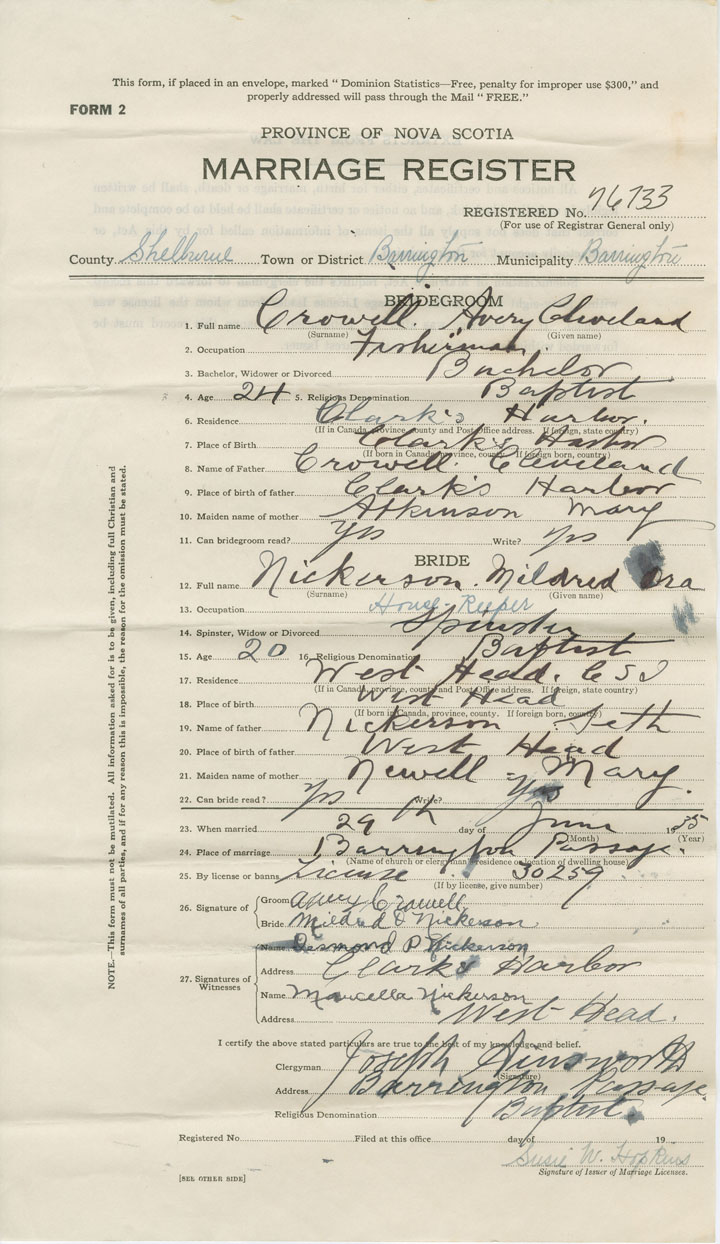 This form, if placed in an envelope, marked " Dominion Statistics—Free, penalty for improper use $300," and
properly addressed will pass through the Mail " FREE."
FORM 2
PROVINCE OF NOVA SCOTIA
MARRIAGE REGISTER
REGISTERED No. 76733
(For use of Registrar General only)
County Shelburne Town or District Barrington Municipality Barrington
BRIDEGROOM
1. Full name Crowell. Avery Cleveland
(Surname) (Given name)
2. Occupation Fisherman.
3. Bachelor, Widower or Divorced Bachelor
4. Age 24 5. Religious Denomination Baptist
6. Residence Clark's Harbor.
(If in Canada, province, county and Post Office address. If foreign, state country)
7. Place of Birth Clark's Harbor
(If born in Canada, province, county. If foreign born, country)
8. Name of Father Crowell. Cleveland
9. Place of birth of father Clark's Harbor
10. Maiden name of mother Atkinson Mary
11. Can bridegroom read? Yes Write? Yes
BRIDE
12. Full name Nickerson. Mildred Ora
(Surname) (Given name)
13. Occupation House-Keeper
14. Spinster, Widow or Divorced Spinster
15. Age 20 16. Religious Denomination Baptist
17. Residence West Head. C S I
(If in Canada, province, county and Post Office address. If foreign, state country)
18. Place of Birth West Head
(If born in Canada, province, county. If foreign born, country)
19. Name of father Nickerson Seth
20. Place of birth of father West Head
21. Maiden name of mother Newell = Mary.
22. Can bride read? Yes Write? Yes
23. When married 29th day of June 1935
(Month) (Year)
24. Place of marriage Barrington Passage.
(Name of church or clergyman, residence or location of dwelling house)
25. By license or banns License. 30259
(If by license, give number)
26. Signature of Groom Avery C Crowell
Bride Mildred O Nickerson
27. Signatures of Witnesses Name Desmond P Nickerson
Address Clark's Harbor
Name Marcella Nickerson
Address West Head.
I certify the above stated particulars are true to the best of my knowledge and belief.
Clergyman Joseph Ainsworth
(Signature)
Address Barrington Passage.
Religious Denomination Baptist.
Registered No. Filed at this office day of 19
Susie W. Hopkins
Signature of Issuer of Marriage Licenses.
[SEE OTHER SIDE]
NOTE.—This form must not be mutilated. All information asked for is to be given, including full Christian and
surnames of all parties, and if for any reason this is impossible, the reason for the omission must be stated.